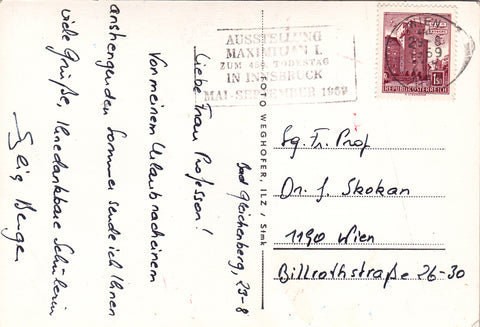 AUSSTELLUNG
MAXIMILIAN I.
ZUM 450. TODESTAG
IN INNSBRUCK
MAI-SEPTEMBER 1969
WIEN
69
1S
REPUBLIK ÖSTERREICH
FOTO WEGHOFER, ILZ / Stmk
Bad Gleichenberg, 23-8
Liebe Frau Professor!
Von meinem Urlaub nach einem
anstrengenden Sommer sende ich Ihnen
viele Grüße, Ihre dankbare Schülerin
Sg. Fr. Prof
Dr. J. Skokan
1190 Wien
Billrothstraße 26-30